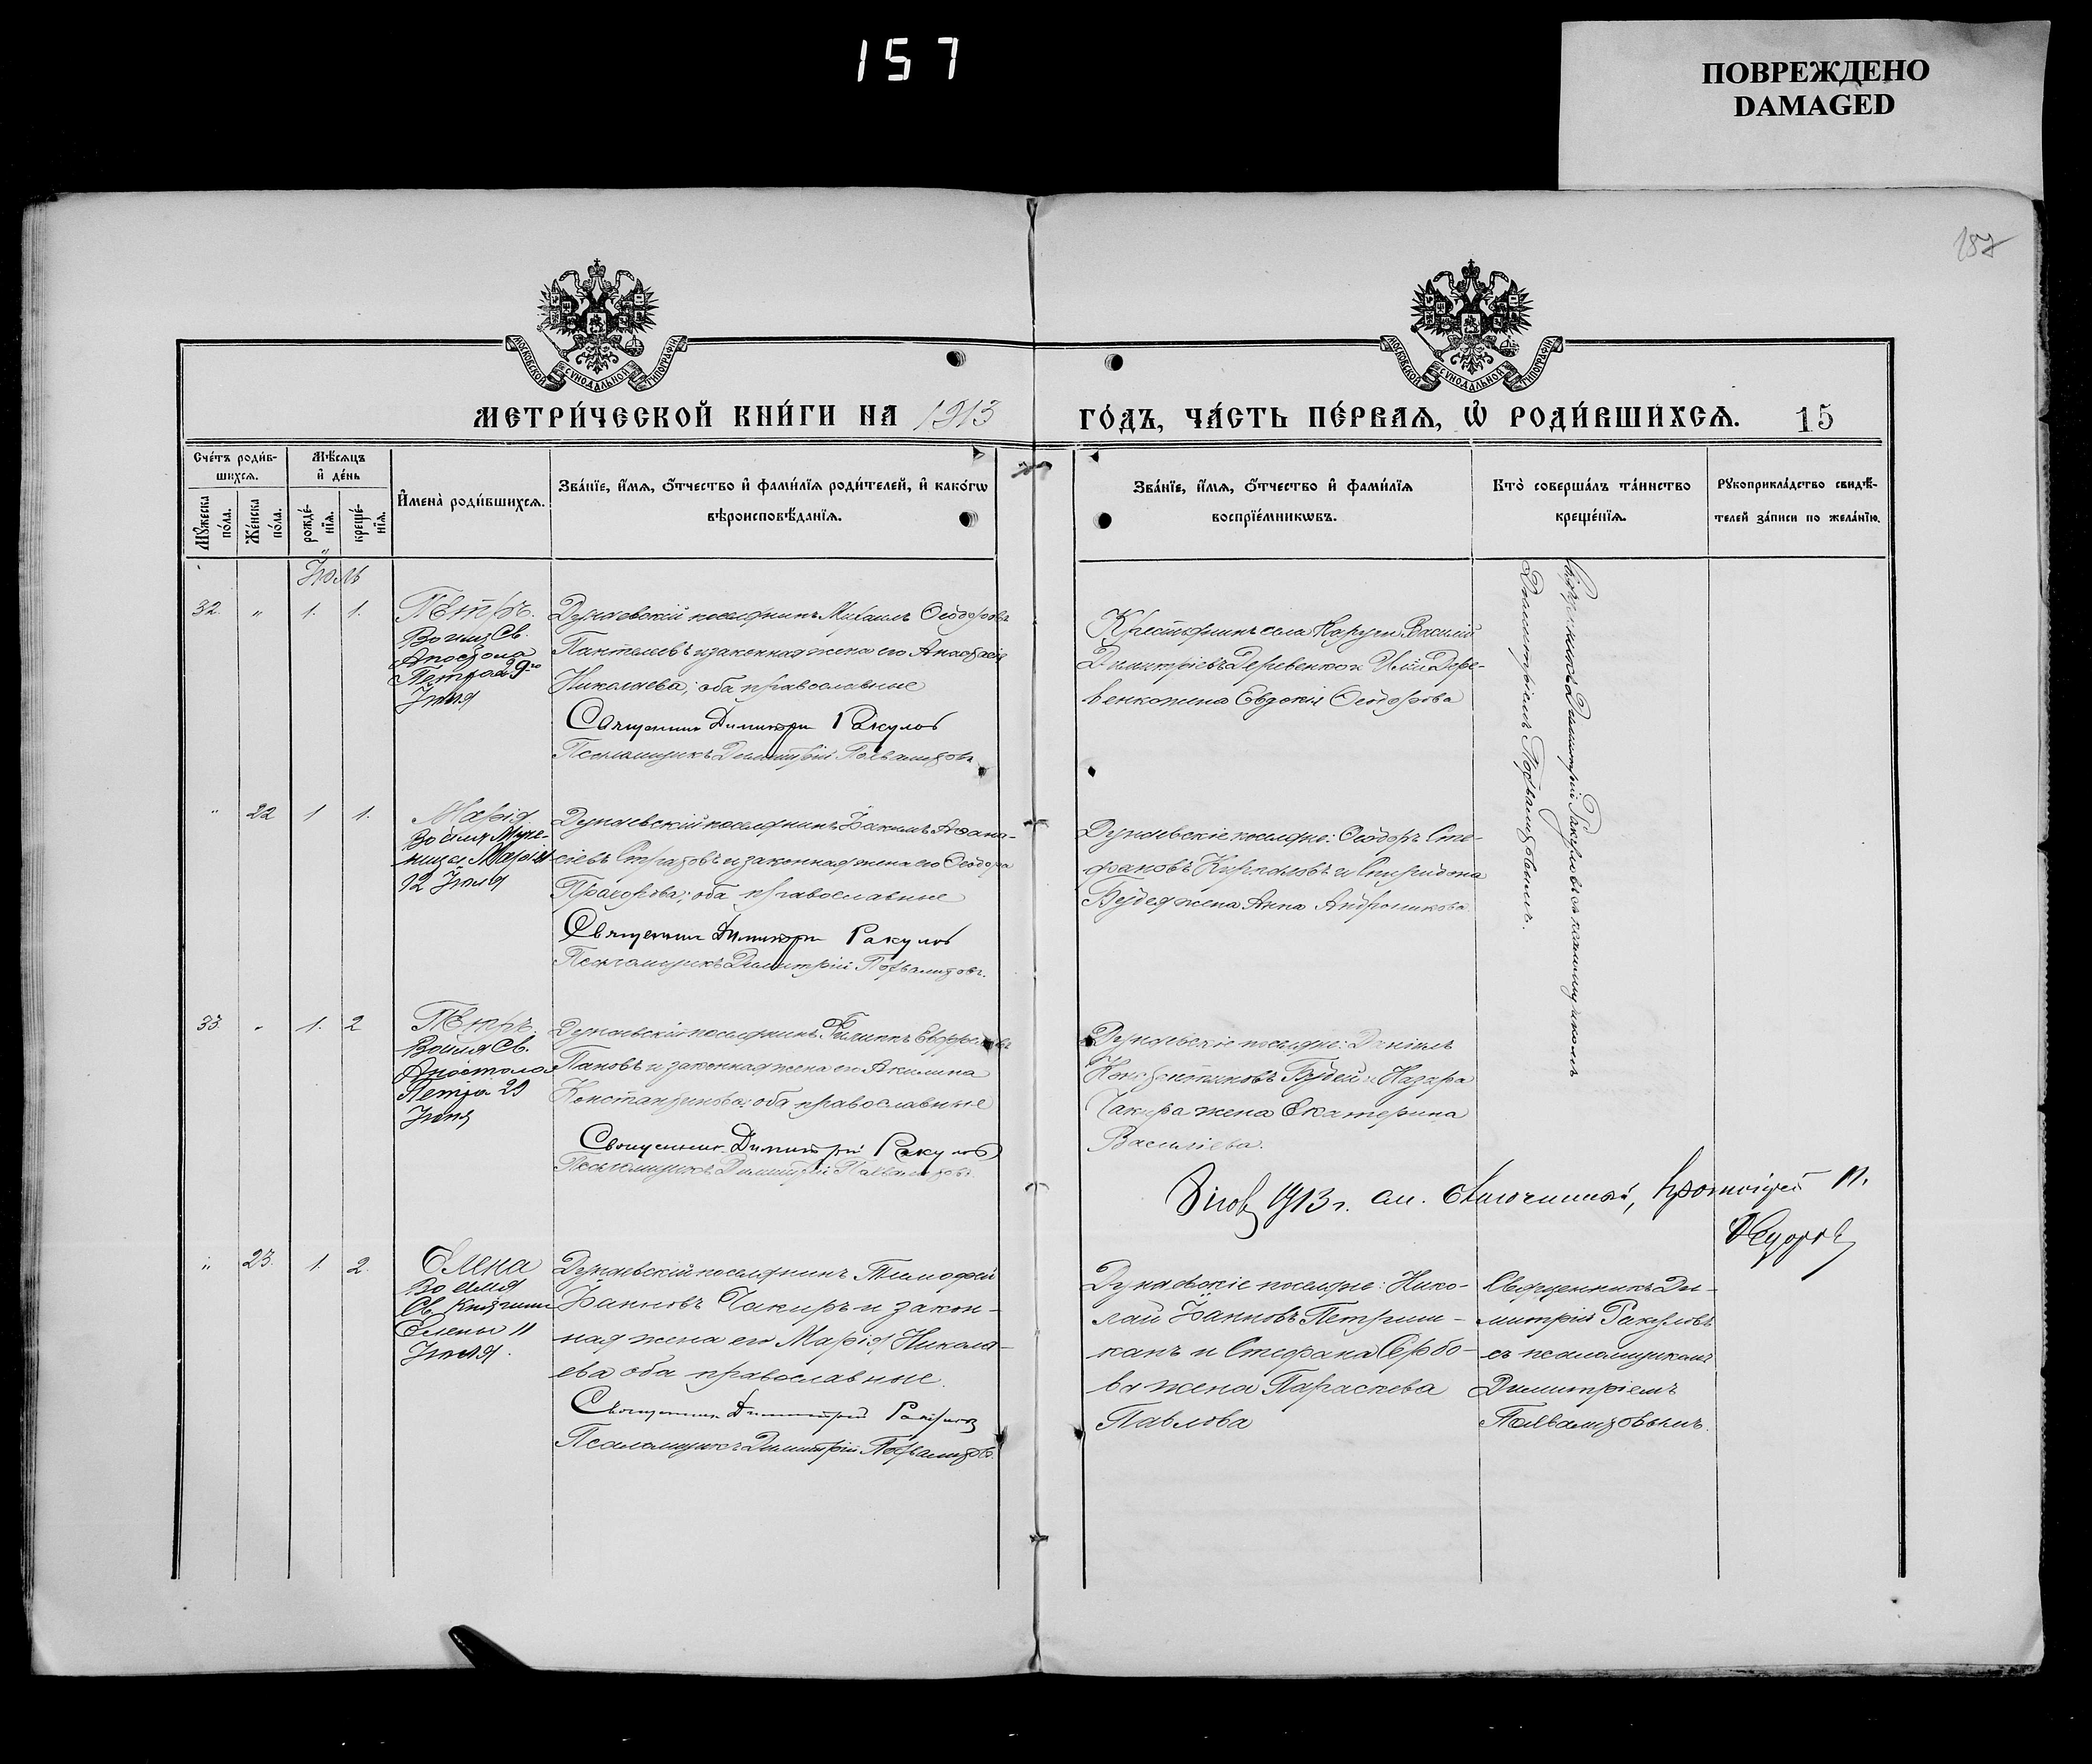 157
ПОВРЕЖДЕНО
DAMAGED
157
МОСКОВСКОЙ СѴНОДАЛЬНОЙ ТИПОГРАФІИ
МОСКОВСКОЙ СѴНОДАЛЬНОЙ ТИПОГРАФІИ
МЕТРИ́ЧЕСКОЙ КНИ́ГИ НА 1913
ГО́ДЪ, ЧА́СТЬ ПЕ́РВАѦ, Ѡ҆ РОДИ́ВШИХСѦ. 15
Сче́тъ роди́в-
шихсѧ.
Мѣ́сѧцъ
и҆ де́нь
Мꙋжеска
по́ла.
Же́нска
по́ла.
рожде́-
нїѧ.
креще́-
нїѧ.
И҆мена̀ роди́вшихсѧ.
Зва́нїе, и҆́мѧ, ѻ҆́тчество и҆ фами́лїѧ роди́телей, и҆ како́гѡ
вѣроисповѣ́данїѧ.
Зва́нїе, и҆́мѧ, ѻ҆́тчество и҆ фами́лїѧ
воспрїе́мникѡвъ.
Кто̀ соверша́лъ та́инство
креще́нїѧ.
Рꙋкоприкла́дство свидѣ́-
телей за́писи по жела́нїю.
Іюль
32. " 1. 1.
Петръ.
Во имя Св.
Апостола
Петра 29го
Іюня
Дунаевскій поселянинъ Михаилъ Ѳеодоровъ
Пантелеевъ и законная жена его Анастасія
Николаева; оба православные
Священник Димитри Ракулов
Псаломщикъ Димитрій
Крестьянинъ села Василій
Димитріевъ Деревенко и Дере-
венкотина Евдокія Ѳеодорова
Священникъ Димитрій Ракуловъ съ псаломщикомъ
Димитріемъ
" 22 1 1.
Марія
Во имя Муче-
ницы Маріи
12 Іюля
Дунаевскій поселянинъ Іоакимъ Аѳана-
сіевъ и законная жена его Ѳеодора
Прохорова; оба православные
Священник Димитри Ракулов
Псаломщикъ Димитрій
Дунаевскіе поселяне: Ѳеодоръ Сте-
фановъ и Спиридона
Будея жена Анна Андроникова
33. " 1. 2
Петръ.
Во имя Св.
Апостола
Петра 29
Іюня
Дунаевскій поселянинъ Филиппъ
Пановъ и законная жена его Акилина
Константинова; оба православные
Священник Димитрій Ракулов
Псаломщикъ Димитрій
Дунаевскіе поселяне: Даніилъ
Константиновъ Будей и Назара
Чакира жена Екатерина
Василіева.
1913 г.
" 23. 1. 2.
Елена
Во имя
Св. Княгини
Елены 11
Іюля.
Дунаевскій поселянинъ Тимофей
Іоанновъ Чакиръ и закон-
ная жена его Марія Никола-
ева оба православные.
Священник Димитрій Ракулов
Псаломщикъ Димитрій
Дунаевскіе поселяне: Нико-
лай Іоанновъ Петриш-
канъ и Стефана Сербо-
ва жена Параскева
Павлова
Священникъ Ди-
митрій Ракуловъ
съ псаломщикомъ
Димитріемъ